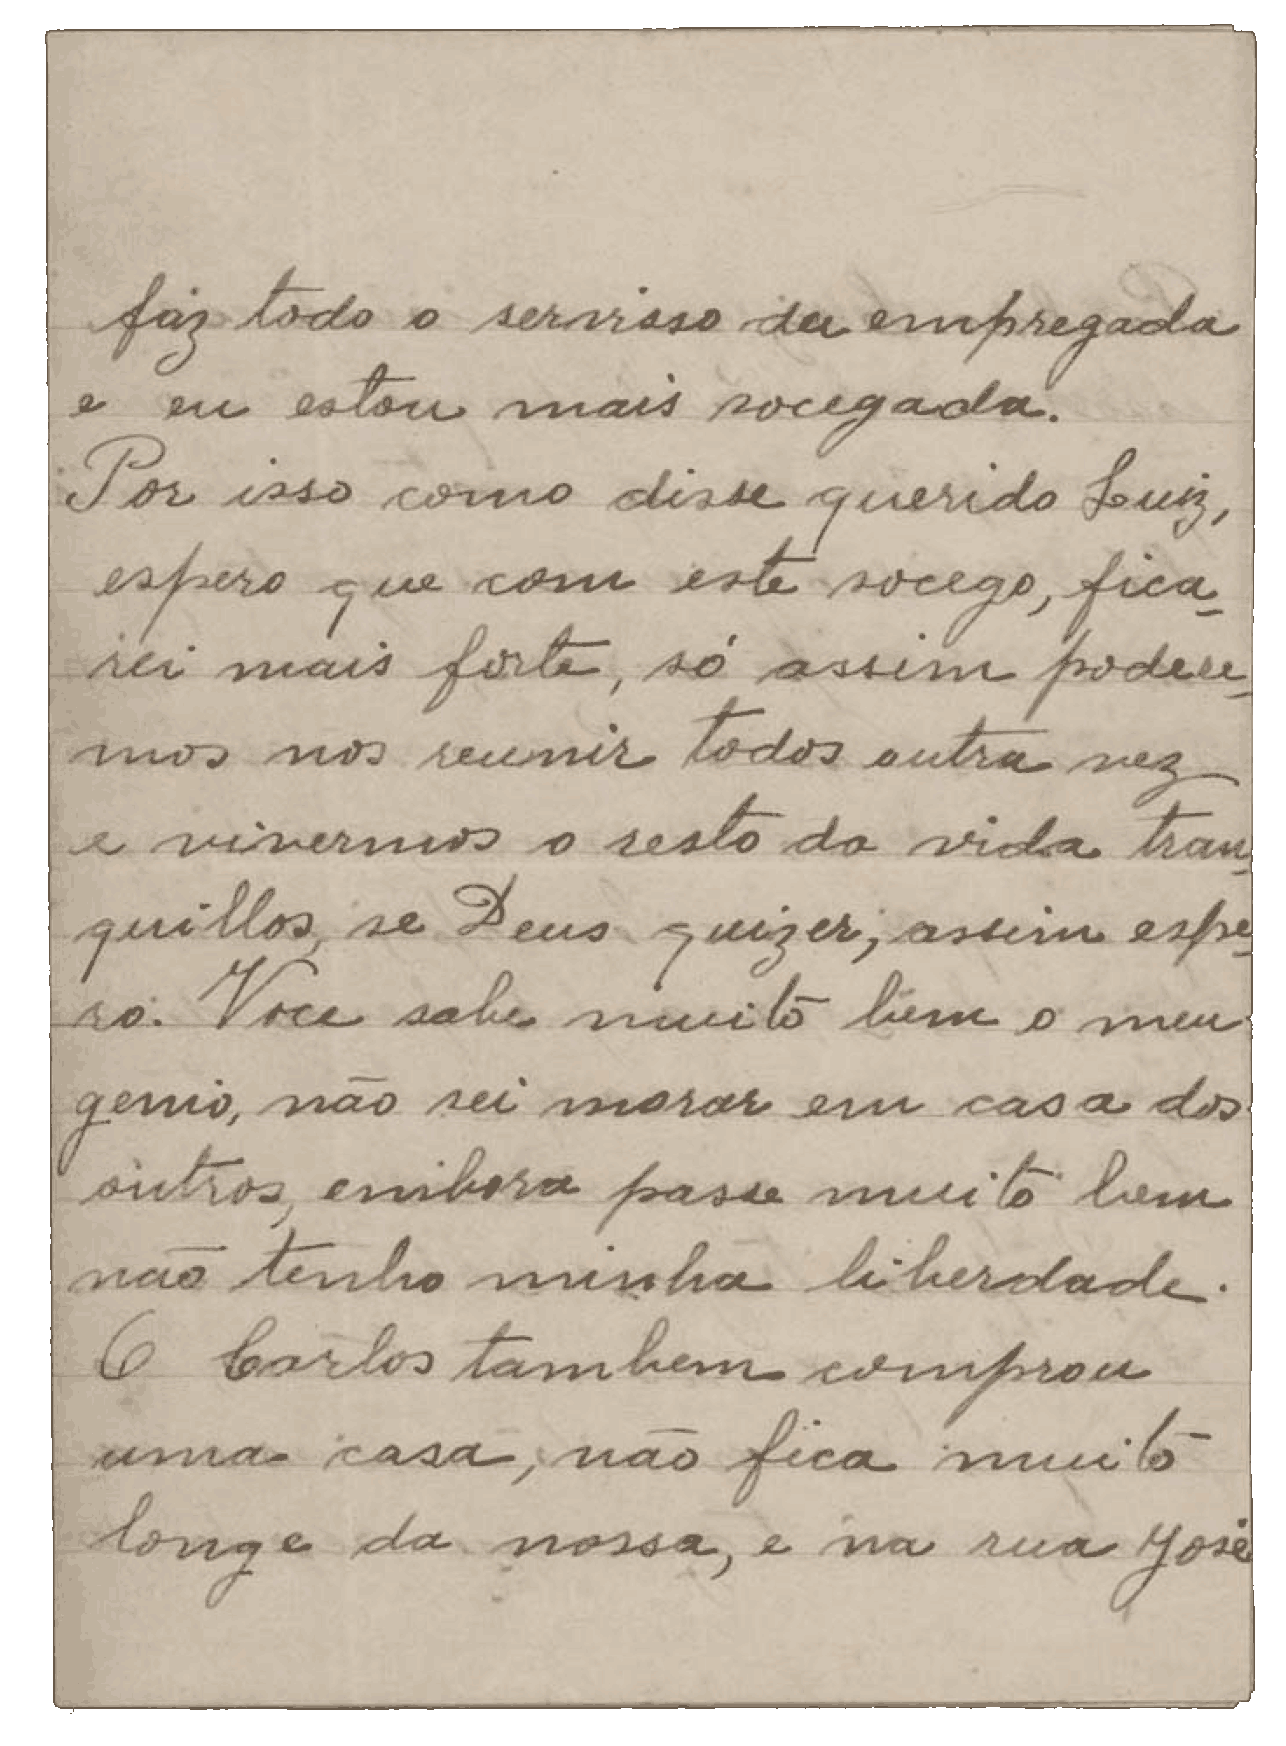 faz todo o servisso da empregada
e eu estou mais socegada.
Por isso como disse querido Luiz,
espero que com este socego, fica-
rei mais forte, só assim podere-
mos nos reunir todos outra vez
e vivermos o resto da vida tran-
quillos, se Deus quizer, assim espe-
ro. Voce sabe muito bem o meu
genio, não sei morar em casa dos
outros, embora passe muito bem
não tenho minha liberdade.
O Carlos tambem comprou
uma casa, não fica muito
longe da nossa, e na rua José